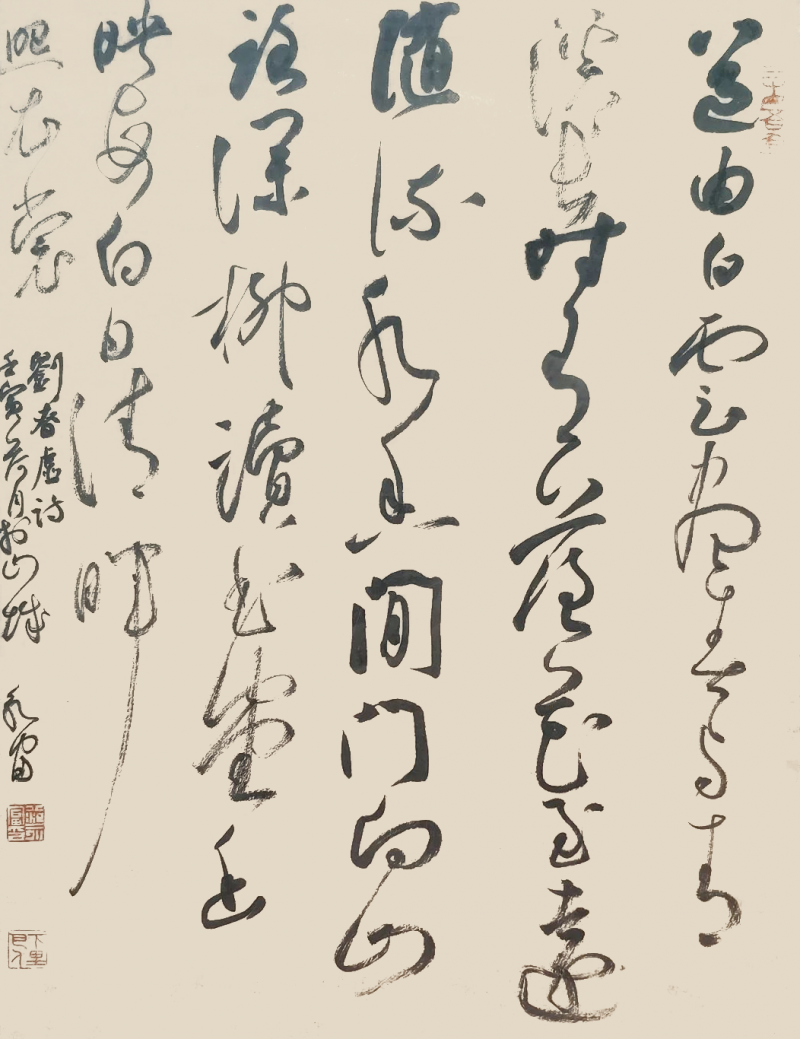 道由白雲盡春與青
溪長時有落花至遠
隨流水香間門向山
路深柳讀書堂幽
映每白日清暉
照衣裳
劉春虛詩
壬寅荷月於山城 永富